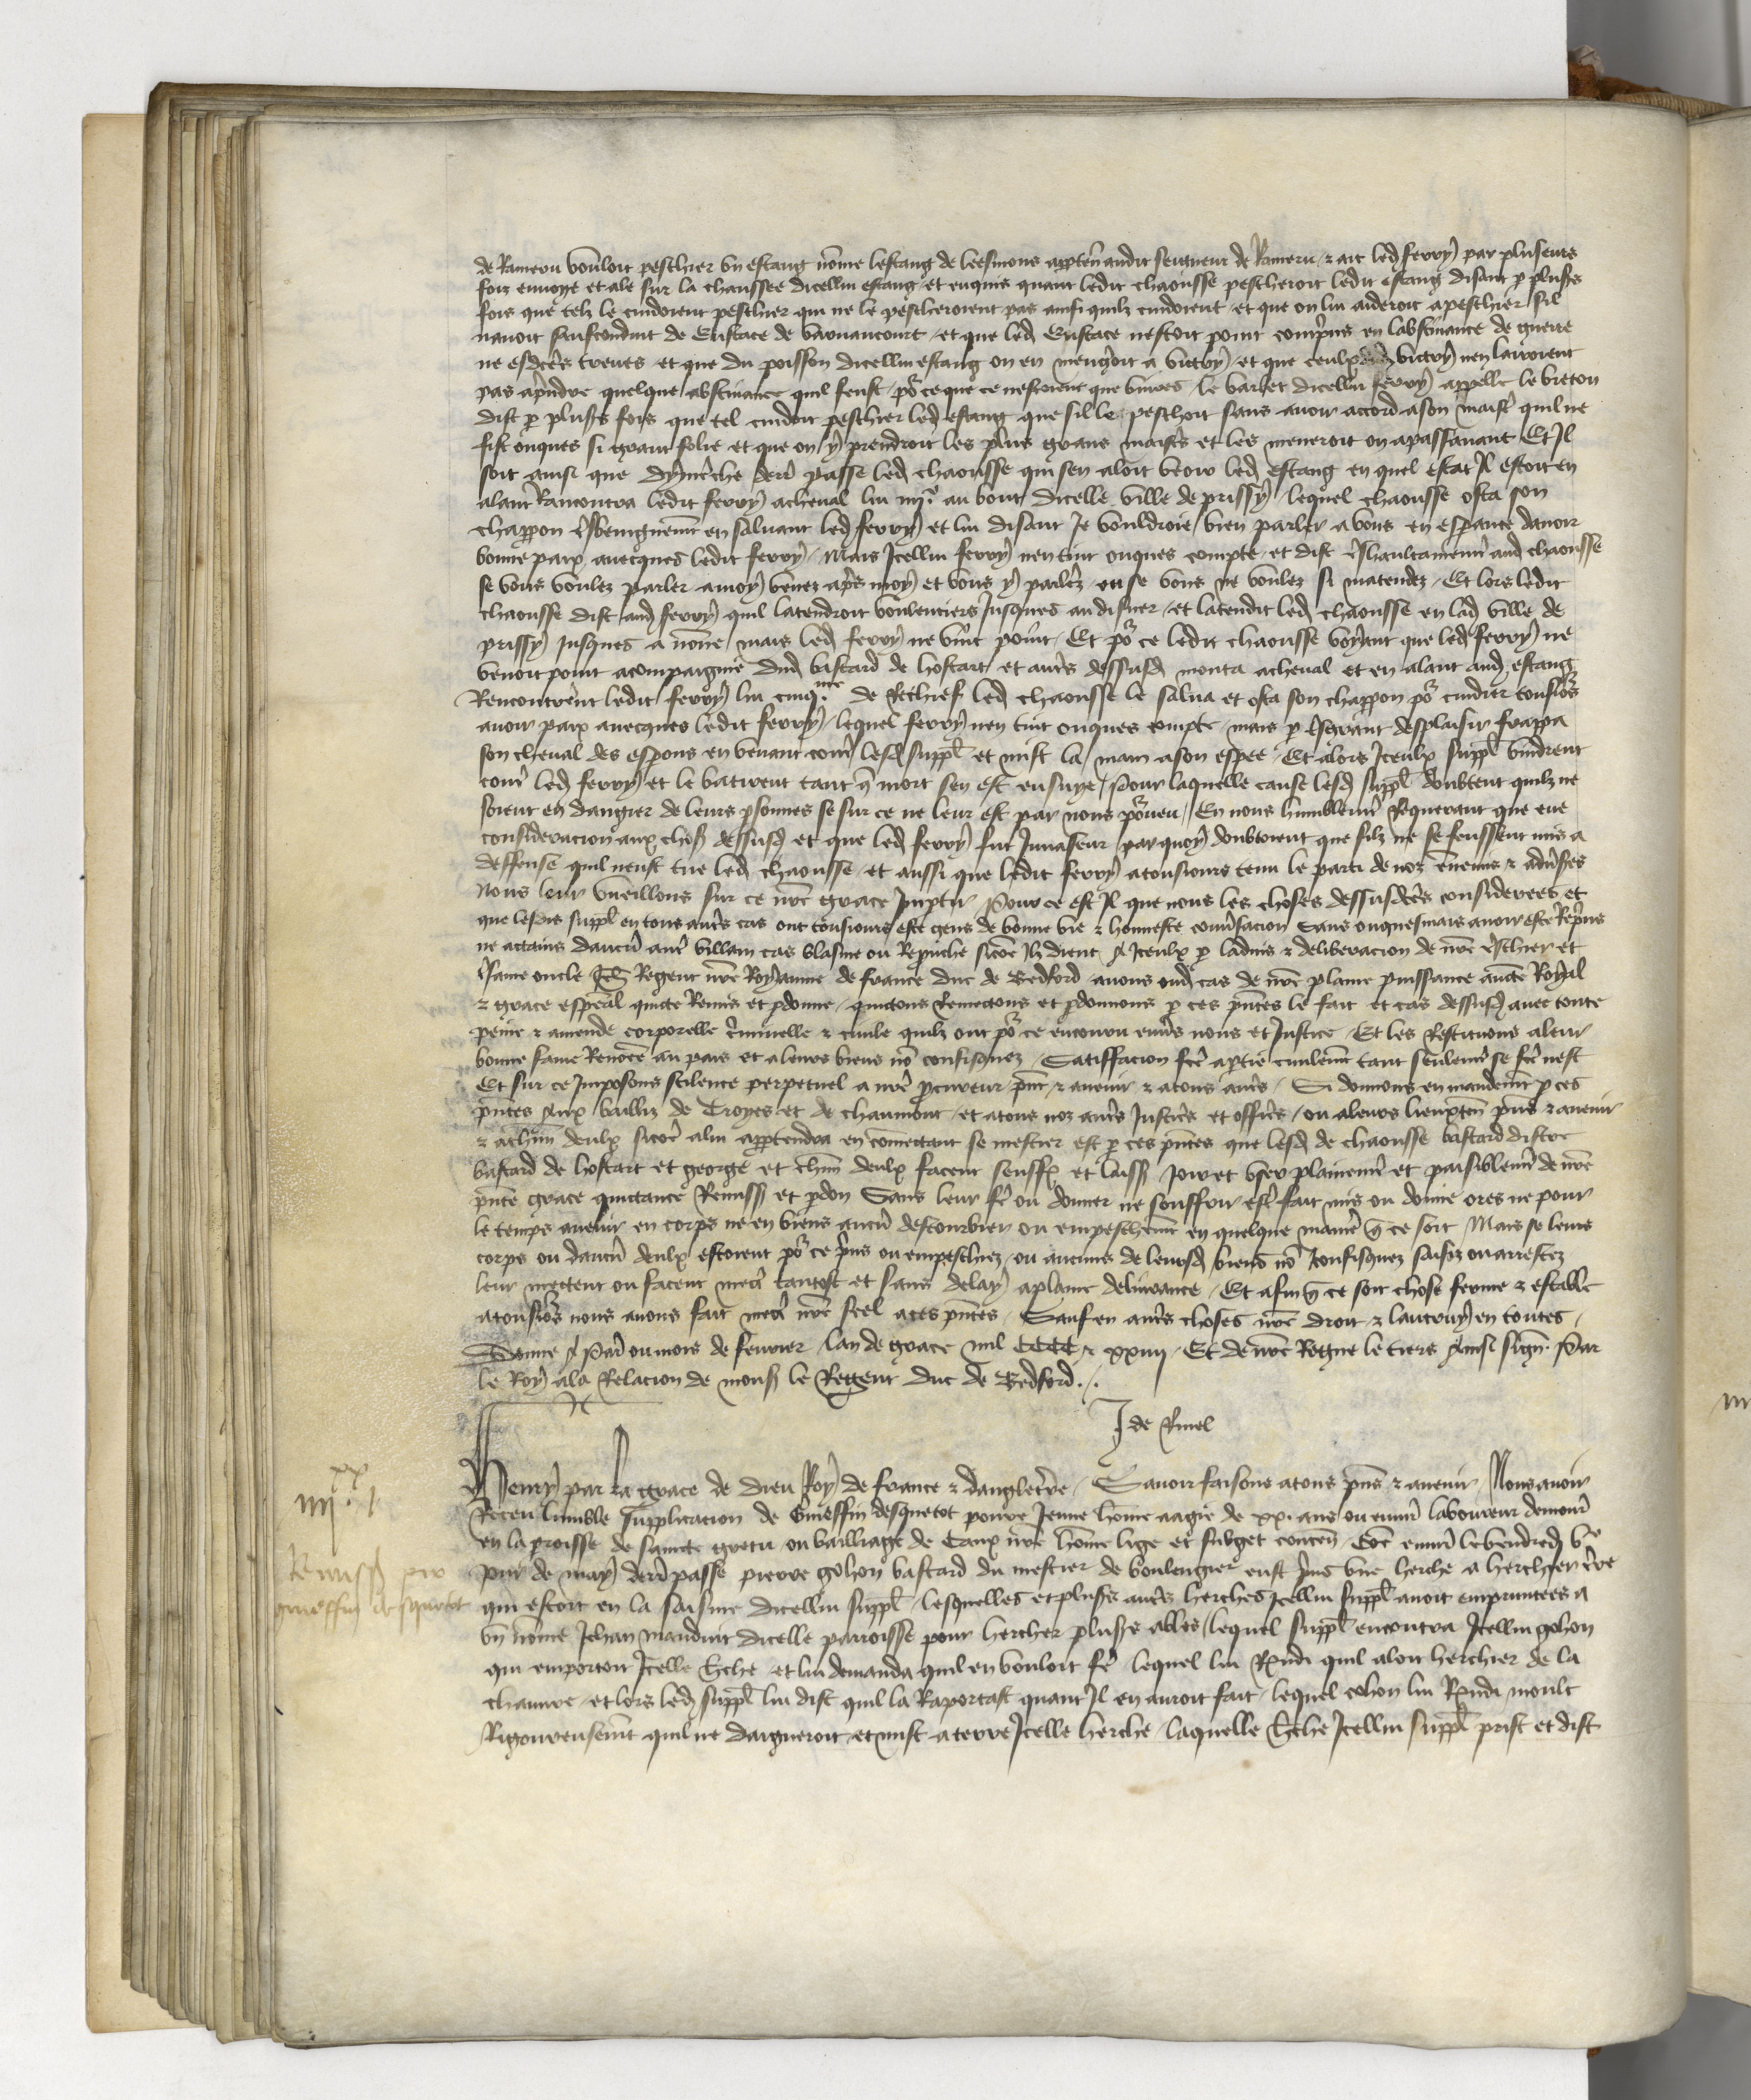 de Rameru vouloit peschier un estang nōme lestang de leesmons apptēn audit seigneur de Rameru / ⁊ ait led ferry par pluseurs
foiz envoyé et alé sur la chaussee dicellui estang / et enquis quant ledit chaousse pescheroit ledit estang disant p̱ plus͛s
fois que telz le cuidoient peschier qui ne le pescheroient pas ainsi quilz cuidoient / et que on lui aideroit a peschier sil
navoit saufconduit de Eustace de Varnancourt / et que led Eustace nestoit point comprins en labstinance de guerre
ne esdc̄es treves et que du poisson dicellui estang on en mengeroit a victry / et que ceulx de victry nen lairoient
pas aprndre quelque abstinance quil feust / po͛ ce que ce nestoient que vivres / le varlet dicellui ferry appellé le breton
dist p̱ plus͛s fois que tel cuidoit peschier led estang que sil le peschoit sans avoir accord a son maist͛ quil ne
fist onques si grant folie et que on y prendroit les plus grans maist͛s et les meneroit on a passavant / Et Il
soit ainsi que dymēche der͛ passe led chaousse qui sen aloit veoir led estang en quel estat Il estoit en
alant Rencontra ledit ferry a cheval lui iiij͛ᵉ au bout dicelle ville de prissy / lequel chaousse osta son
chappon t͛sbenignemt en saluant led ferry et lui disant Je vouldroie bien parler a vous en espance davoir
bonne paix avecques ledit ferry / Mais Icellui ferry nen tint onques compte / et dist t͛shaultainemt aud chaousse
se vous voulez parler a moy venez ap͛s moy et vous y parlez / ou se vous ne voulez si matendez / Et lors ledit
chaousse dist aud ferry quil latendroit voulentiers Jusques au disner / et latendit led chaousse en lad ville de
prissy Jusques a nōne / mais led ferry ne vint point / Et po͛ ce ledit chaousse voyant que led ferry ne
venoit point acompaignié dud bastard de hostart et aut͛s dessusd monta a cheval et en alant aud estang
Rencontrer̄t ledit ferry lui cinq͛ᵐᵉ de Rechief led chaousse le salua et osta son chappon po͛ cuidier tousio͛s
avoir paix avecques ledit ferry / lequel ferry nen tint onques compte / mais p̱ t͛sgrant desplaisir frappa
son cheval des esperons en venant cont͛ lesd suppl̄ et mist la main a son espee / Et alors Iceulx suppl̄ vindrent
cont͛ led ferry et le batirent tant q̄ mort sen est ensuye / Pour laquelle cause lesd suppl̄ doubtent quilz ne
soient en dangier de leurs p̱sonnes se sur ce ne leur est par nous po͛veu / En nous humblemt Requerant que eue
consideracion aux chos̄ dessusd et que led ferry fut Invaseur par quoy doubtoient que silz ne se feussent mis a
deffense quil neust tué led chaousse / et aussi que ledit ferry a tousiours tenu le parti de noz ēnemis ⁊ adv͛s͛es
Nous leur vueillons sur ce nr̄e grace Impt͛ir / Pour ce est Il que nous les choses dessusdc̄es considerees et
que lesdis suppl̄ en tous aut͛s cas ont tousiours esté gens de bonne vie ⁊ honneste conv͛sacion Sans onquesmais avoir esté Reprins
ne attains daucū aut͛ villain cas blasme ou Reprouche sicōe Ilz dient / A Iceulx p̱ ladvis ⁊ deliberacion de nr̄e t͛schier et
t͛samé oncle Jeh Regent nr̄e Royaume de france duc de Bedford avons oud cas de nr̄e plaine puissance auctē Royal
⁊ grace espēal quicté Remis et p̱donné / quictons Remectons et p̱donnons p̱ ces pn̄tes le fait et cas dessusd avec toute
peine ⁊ amende corporelle c͛iminelle ⁊ civile quilz ont po͛ ce encouru env͛s nous et Justice / Et les Restituons a leur
bonne fame Renōee au pais et a leurs biens nō confisquez / Satiffacion fc͛e a p̱tie civilemt tant seulemt se fc͛e nest
Et sur ce Imposons scilence perpetuel a nr̄e p̱cureur pn̄t ⁊ avenir ⁊ a tous aut͛s / Si donnons en mandemt p̱ ces
pn̄tes Aux bailliz de Troyes et de chaumont / et a tous noz aut͛s Justic͛s et offic͛s / ou a leurs lieuxten̄ pn̄s ⁊ avenir
⁊ a chūn deulx sicōe a lui apptendra en cōmectant se mestier est p̱ ces pn̄tes que lesd de chaousse bastard distre
bastard de hostart et george et chūn deulx facent seuffr et laiss̄ Jouir et user plainemt et paisiblemt de nr̄e
pn̄te grace quictance Remiss̄ et p̱don Sans leur f͛e ou donner ne souffrir est͛ fait mis ou donné ores ne pour
le temps avenir en corps ne en biens aucū destourbier ou empeschemt en quelque maniē q̄ ce soit / Mais se leurs
corps ou daucū deulx estoient po͛ ce prins ou empeschiez / ou aucuns de leursd biens nō confisquez saisiz ou arrestez
leur mectent ou facent mect͛ tantost et sans delay a plaine delivrance / Et afin q̄ ce soit chose ferme ⁊ estable
a tousio͛s nous avons fait mect͛ nr̄e seel a ces pn̄tes / Sauf en aut͛s choses nr̄e droit ⁊ lautruy en toutes /
Donné A Par͛ ou mois de fevrier / lan de grace mil CCCC ⁊ xxiiij / Et de nr̄e Regne le tiers Ainsi sign̄ . Par
le Roy a la Relacion de mons̄ le Regent duc de Bedford ./.
J de Rinel
iiijˣˣ . j
Henry par la grace de dieu Roy de france ⁊ dangleter̄e / Savoir faisons a tous pn̄s ⁊ avenir / Nous avoir
Receu lumble Supplicacion de Guieffin desquetot povre Jeune hōme aagié de xx. ans ou envir̄ laboureur demour̄
en la p̱roisse de saincte gretu ou bailliage de Caux nr̄e hōme lige et subget conten̄ / Cōe envir̄ le vendredi vᵉ
Remiss̄ po͛
guieffin desquetot
jour de may der͛ passé pierre gohon bastard du mestier de boulengier eust prins une herche a herchier t͛re
qui estoit en la saisine dicellui suppl̄ / lesquelles et plus͛s aut͛s herches Icellui suppl̄ avoit empruntees a
un nōme Jehan mauduit dicelle parroisse pour hercher plus͛s ables / lequel suppl̄ encontra Icellui gohon
qui emportoit Icelle h͛che et lui demanda quil en vouloit f͛e / lequel lui Rn̄di quil aloit herchier de la
chanvre / et lors led suppl̄ lui dist quil la Raportast quant Il en auroit fait / lequel cohon lui Rn̄di moult
Rigoureusemt quil ne daigneroit / et mist a terre Icelle herche / laquelle h͛che Icellui suppl̄ prist et dist